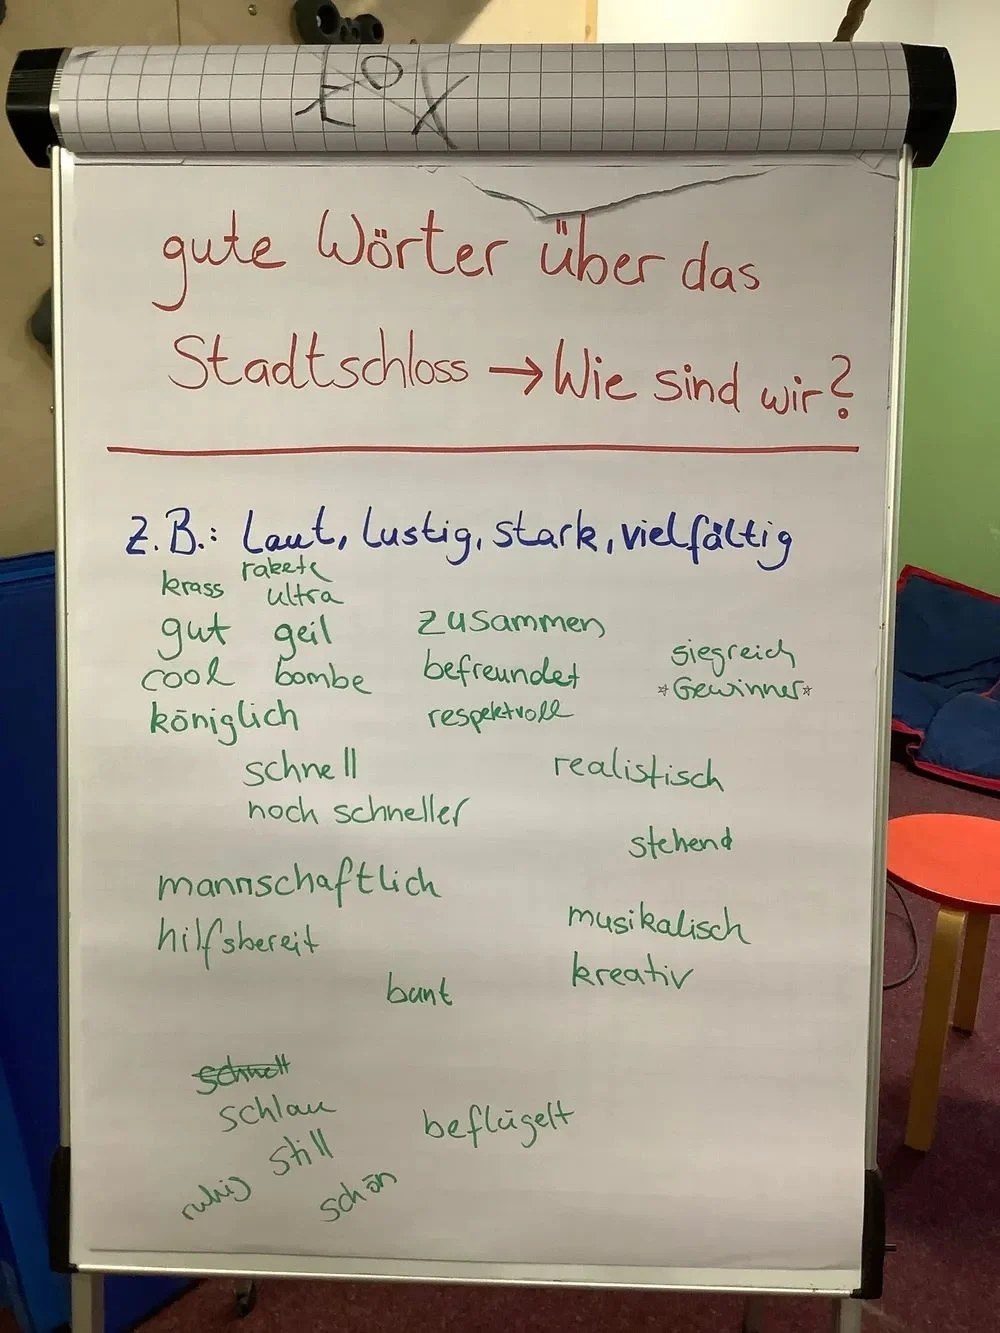 gute Wörter über das
Stadtschloss → Wie sind wir?
z.B.: Laut, lustig, stark, vielfältig
krass rakete
ultra
gut geil zusammen
siegreich
cool bombe befreundet
☆Gewinner☆
königlich respektvoll
schnell realistisch
noch schneller
stehend
mannschaftlich
musikalisch
hilfsbereit
kreativ
bunt
schnell
schlau beflügelt
still
ruhig schön